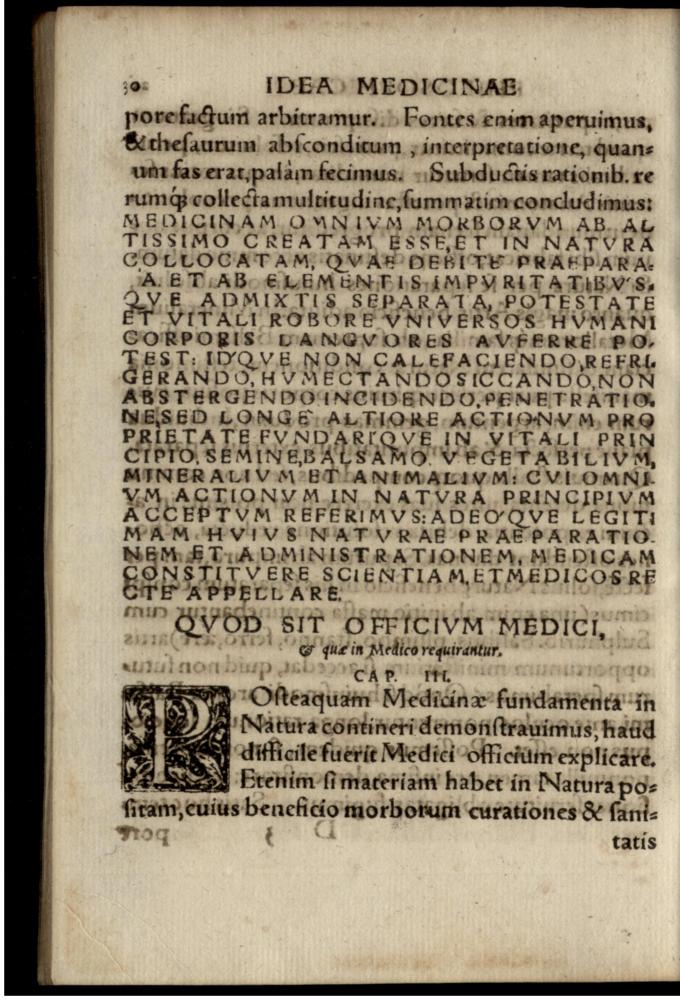 30 IDEA MEDICINAE
pore factum arbitramur. Fontes enim aperuimus,
& theſaurum abſconditum, interpretatione, quan-
um fas erat, palàm fecimus. Subductis rationib. re
rumq́; collecta multitudine, ſummatim concludimus:
MEDICINAM OMNIVM MORBORVM AB AL
TISSIMO CREATAM ESSE, ET IN NATVRA
COLLOCATAM, QVAE DEBITE PRAEPARA-
A. ET AB ELEMENTIS IMPVRITATIBVS-
QVE ADMIXTIS SEPARATA, POTESTATE
ET VITALI ROBORE VNIVERSOS HVMANI
CORPORIS LANGVORES AVFERRE PO-
TEST: ID'QVE NON CALEFACIENDO, REFRI-
GERANDO, HVMECTANDO SICCANDO, NON
ABSTERGENDO INCIDENDO, PENETRATIO-
NE, SED LONGE ALTIORE ACTIONVM PRO
PRIETATE FVNDARI'QVE IN VITALI PRIN
CIPIO, SEMINE, BALSAMO VEGETABILIVM,
MINERALIVM ET ANIMALIVM: CVI OMNI-
VM ACTIONVM IN NATVRA PRINCIPIVM
ACCEPTVM REFERIMVS: ADEO'QVE LEGITI
MAM HVIVS NATVRAE PRAEPARATIO-
NEM ET ADMINISTRATIONEM, MEDICAM
CONSTITVERE SCIENTIAM, ET MEDICOS RE
CTE APPELLARE.
QVOD SIT OFFICIVM MEDICI,
& quæ in Medico requirantur.
CAP. III.
POſteaquam Medicinæ fundamenta in
Natura contineri demonſtrauimus, haud
difficile fuerit Medici officium explicare.
Etenim ſi materiam habet in Natura po-
ſitam, cuius beneficio morborum curationes & ſani-
tatis